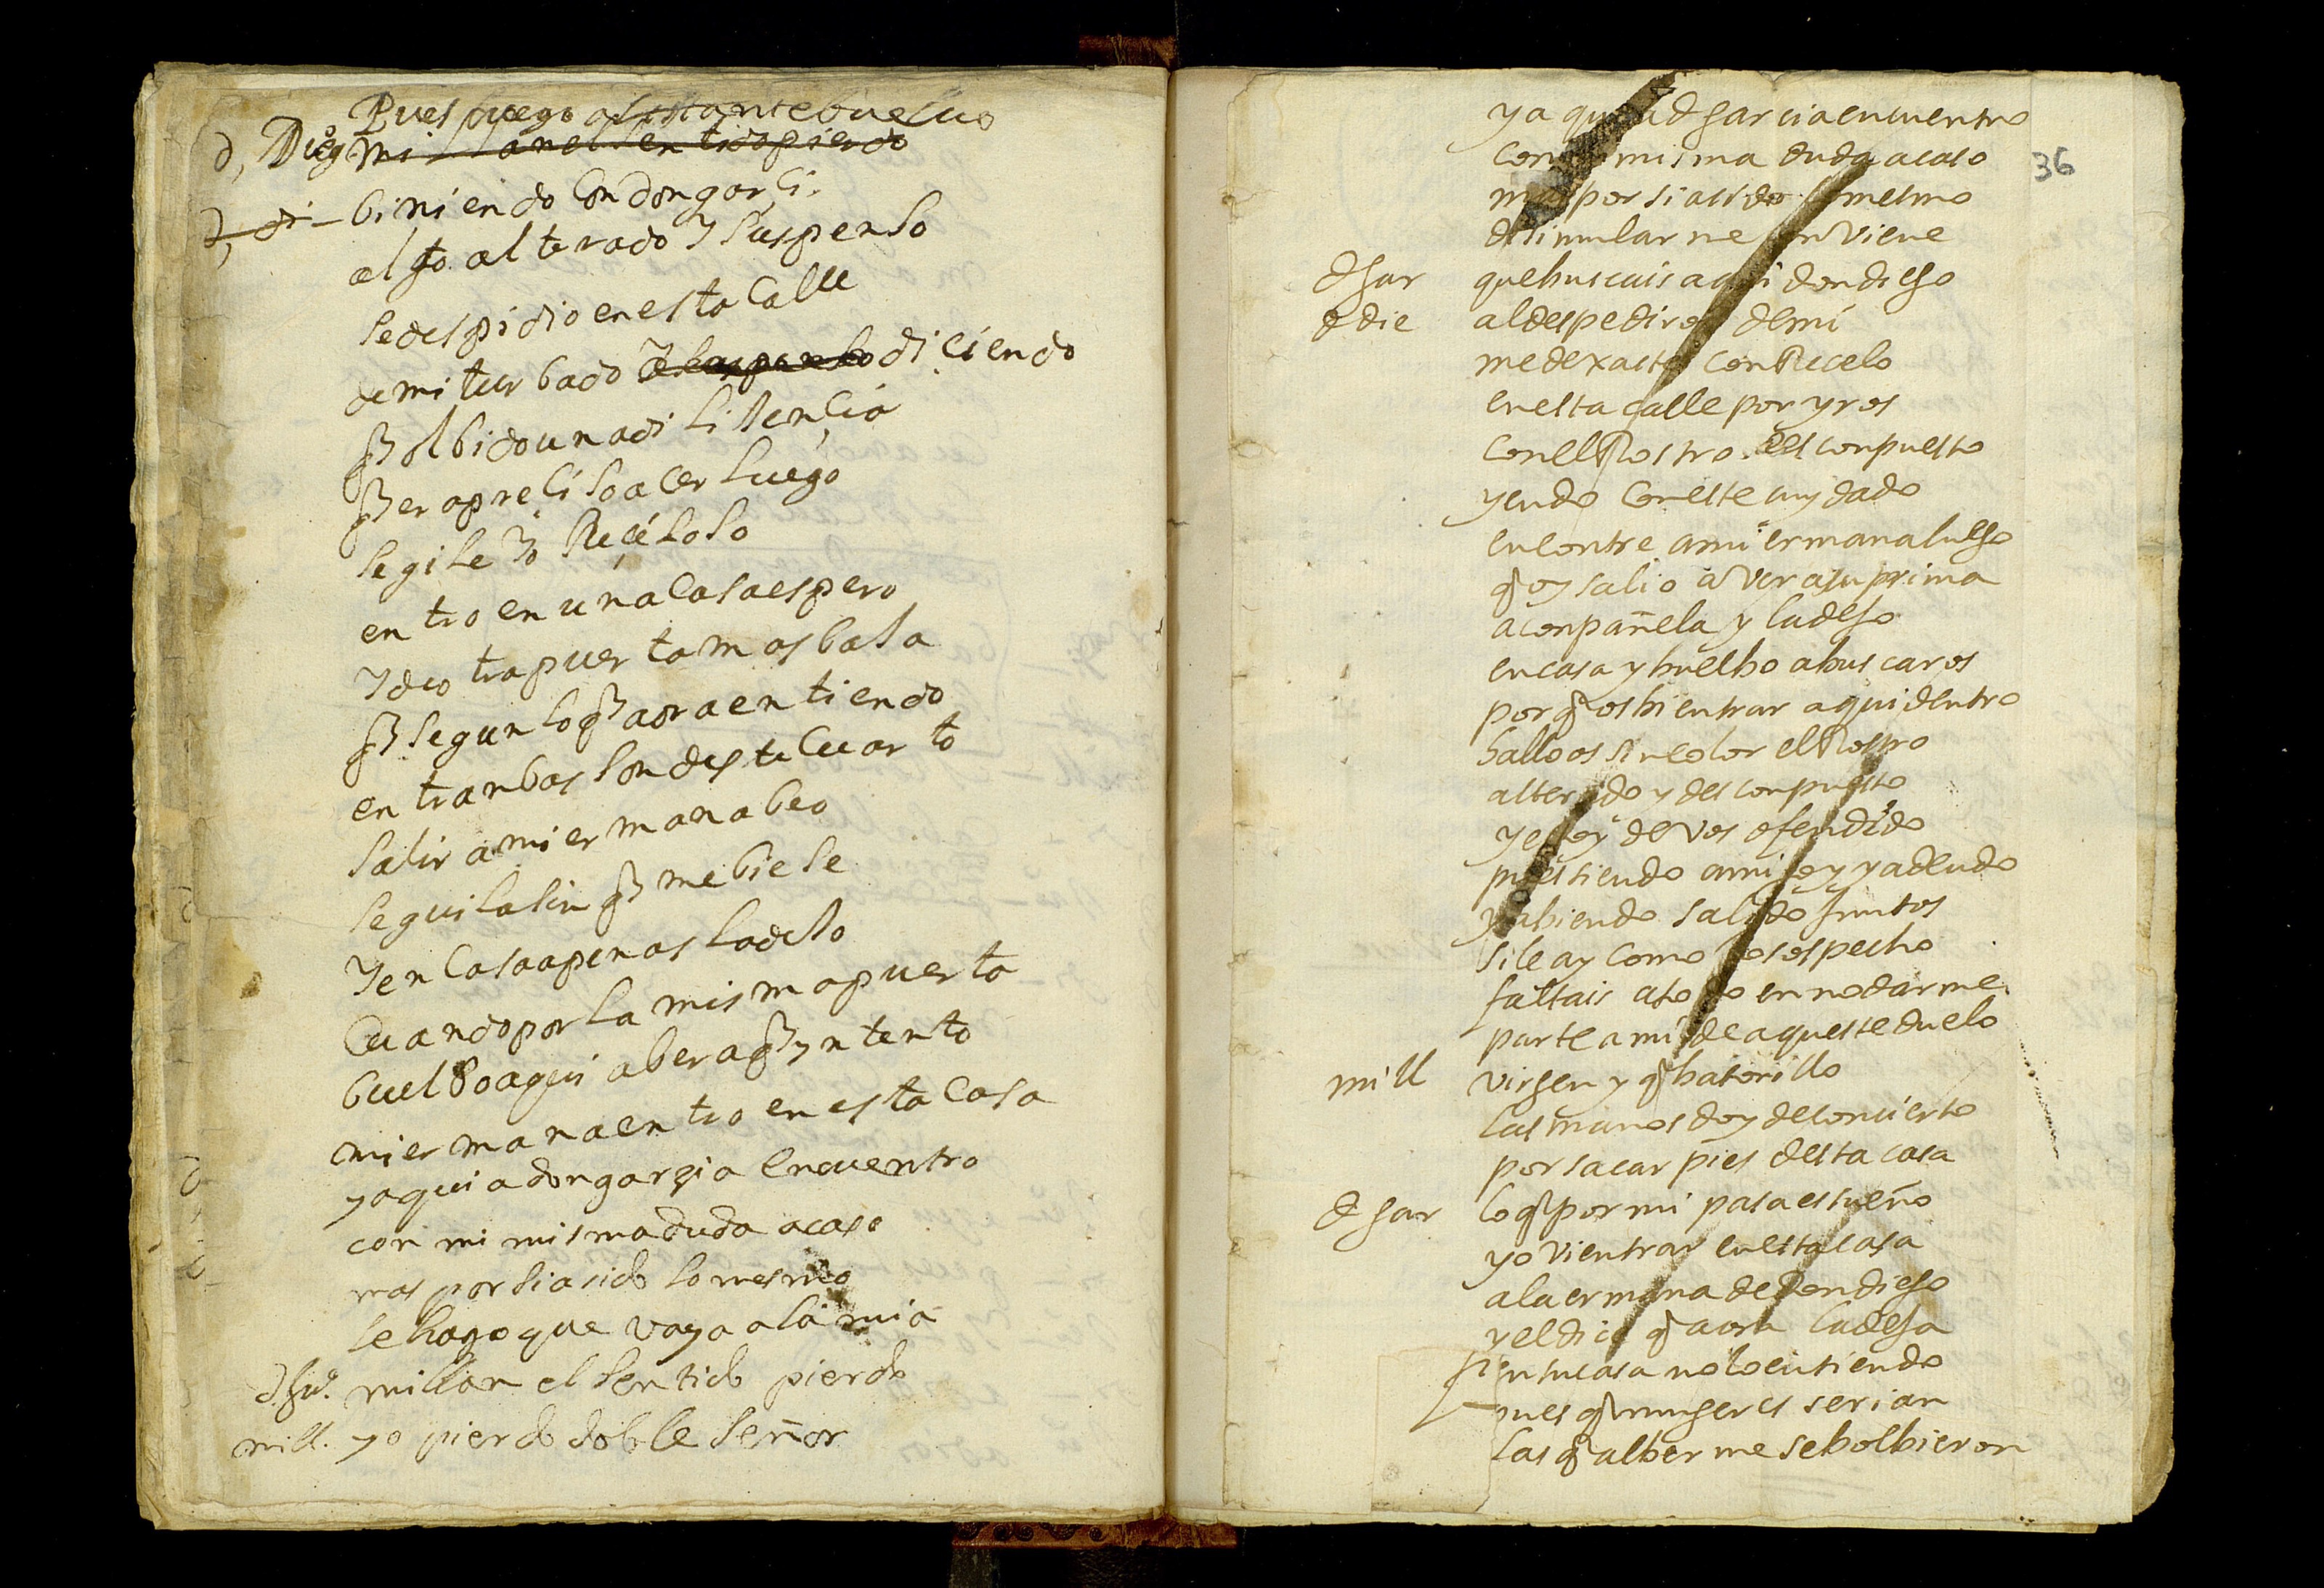 Pues luego al istante buelvo
d, Diego millan el sentido pierdo
d, di biniendo con don garci.
algo alterado y suspenso
se despidio en esta calle
de mi turbado y suspenso diciendo
q olbido una dilisencia
q era preciso acer luego
segile yo Receloso
entro en una casa espero
y de otra puerta mas basa
q segun lo q aora entiendo
entranbas son deste cuarto
salir a mi ermana beo
seguila sin q me biese
y en casa apenas la deso
cuando por la misma puerta
buelbo aqui a ber a q yntento
mi ermana entro en esta casa
y aqui a don garçia encuentro
con mi misma duda acaso
mas por si a sido lo mesmo
le hago que vaya a la mia
d. gar. millan el sentido pierdo
mill. yo pierdo doble señor
36
ya qui a d garcia encuentro
con mi misma duda acaso
mas por si a sido lo mesmo
disimular me conviene
d gar que buscais aqui don diego
d die al despediros de mi
me dexastes con Recelo
en esta calle por yros
con el Rostro descompuesto
yendo con este cuydado
encontre a mi ermana luego
q oy salio a ver a su prima
aconpañela y la dejo
en casa y buelbo a buscaros
por q os bi entrar aqui dentro
hallo os sin color el Rostro
alterado y desconpuesto
y estoy de vos ofendido
pues siendo amigo y ya deudo
y abiendo salido juntos
si le ay como lo sospecho
faltais a todo en no darme
parte a mi de aqueste duelo
mill virgen y q batorillo
las manos doy de concierto
por sacar pies desta casa
d gar lo q por mi pasa es sueño
yo vi entrar en esta casa
a la ermana de Don diego
y el dice q aora la deja
en su casa no lo entiendo
pues q mugeres serian
las q al ber me se bolbieron